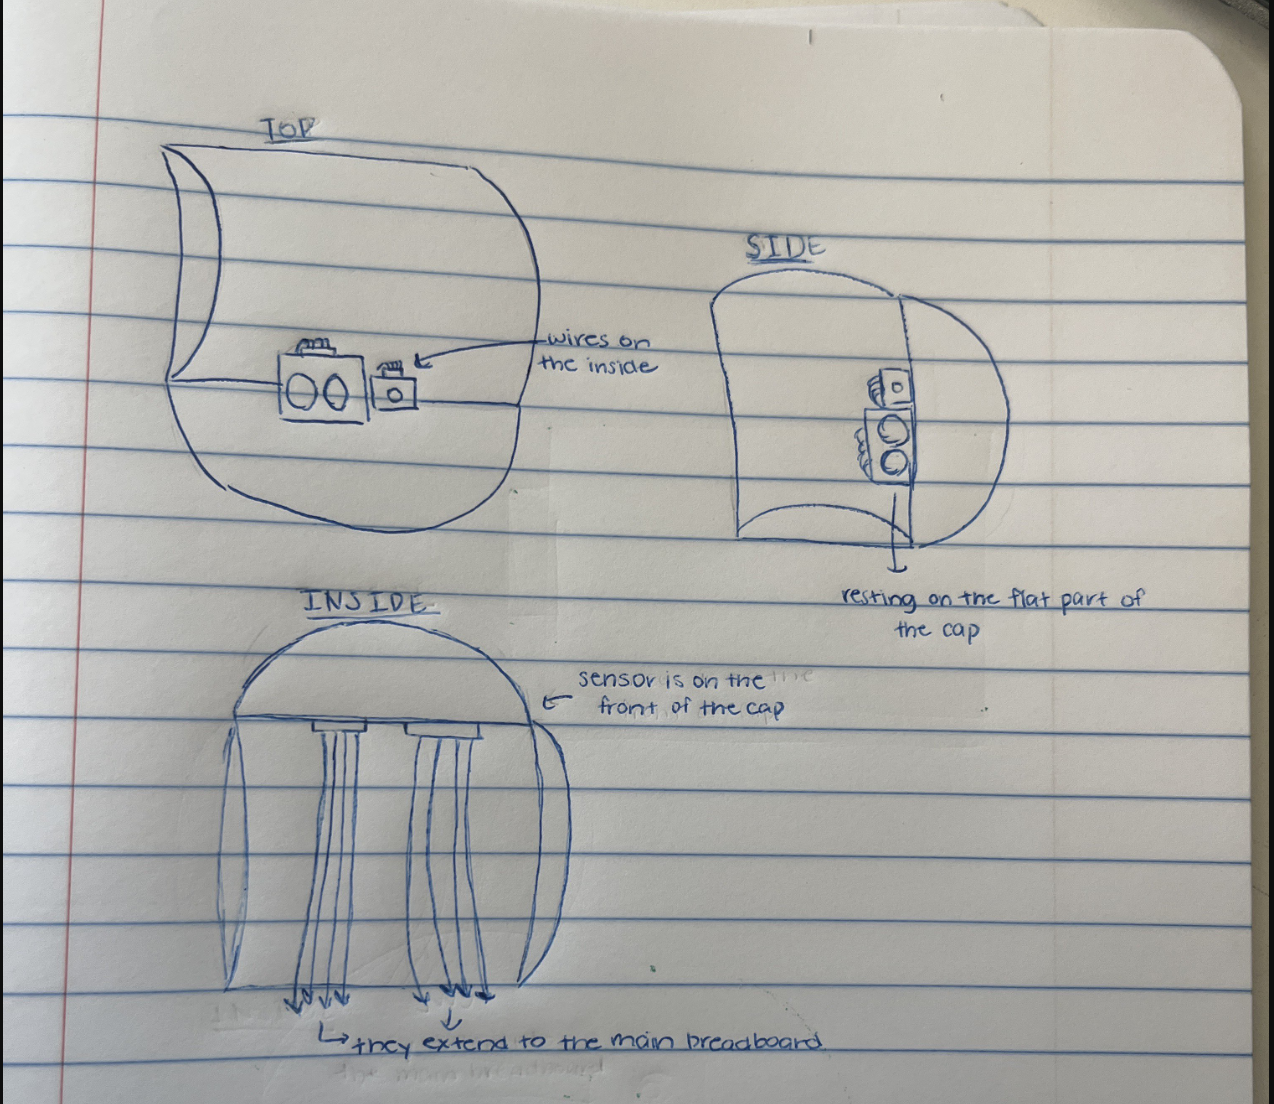 TOP
wires on
the inside
SIDE
resting on the flat part of
the cap
INSIDE
sensor is on the
front of the cap
they extend to the main breadboard